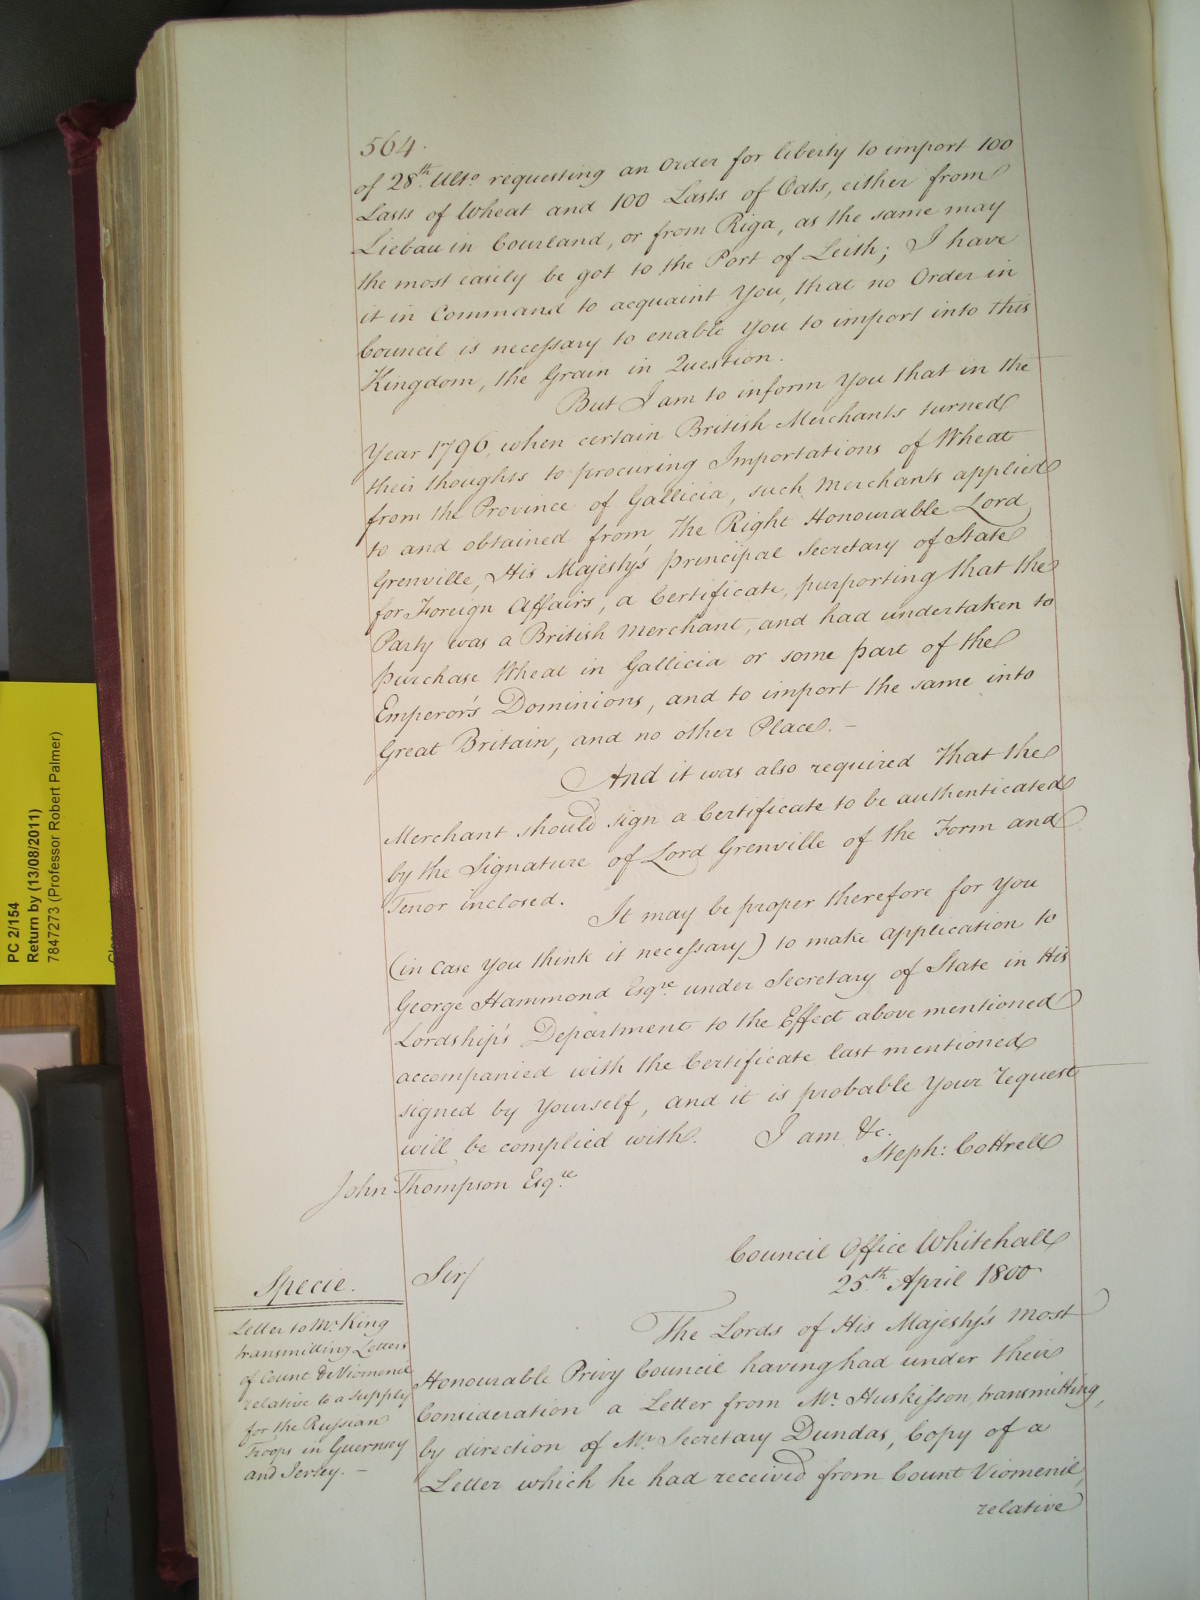 564.
of 28th Ulto requesting an Order for liberty to import 100
Lasts of Wheat and 100 Lasts of Oats, either from
Liebau in Courland, or from Riga, as the same may
the most easily be got to the Port of Leith; I have
it in Command to acquaint You, that no Order in
Council is necessary to enable You to import into this
Kingdom, the Grain in Question.
But I am to inform You that in the
Year 1796, when certain British Merchants turned
their thoughts to procuring Importations of Wheat
from the Province of Gallicia, such Merchants applied
to and obtained from the Right Honourable Lord
Grenville, His Majesty's Principal Secretary of State
for Foreign Affairs, a Certificate, purporting that the
Party was a British Merchant, and had undertaken to
purchase Wheat in Gallicia or some part of the
Emperor's Dominions, and to import the same into
Great Britain, and no other Place. –
And it was also required that the
Merchant should sign a Certificate to be authenticated
by the Signature of Lord Grenville of the Form and
Tenor inclosed.
It may be proper therefore for You
(in case You think it necessary) to make application to
George Hammond Esqre. under Secretary of State in His
Lordship's Department to the Effect above mentioned
accompanied with the Certificate last mentioned
signed by Yourself, and it is probable Your request
will be complied with. I am &c.
Steph: Cottrell
John Thompson Esqre
Council Office Whitehall
25th April 1800
Specie.
Letter to Mr. King
transmitting Letters
of Count de Viomenil
relative to a Supply
for the Russian
Troops in Guernsey
and Jersey. –
Sir/
The Lords of His Majesty's most
Honourable Privy Council having had under their
Consideration a Letter from Mr. Huskisson, transmitting,
by direction of Mr. Secretary Dundas, Copy of a
Letter which he had received from Count Viomenil,
relative
PC 2/154
Return by (13/08/2011)
7847273 (Professor Robert Palmer)